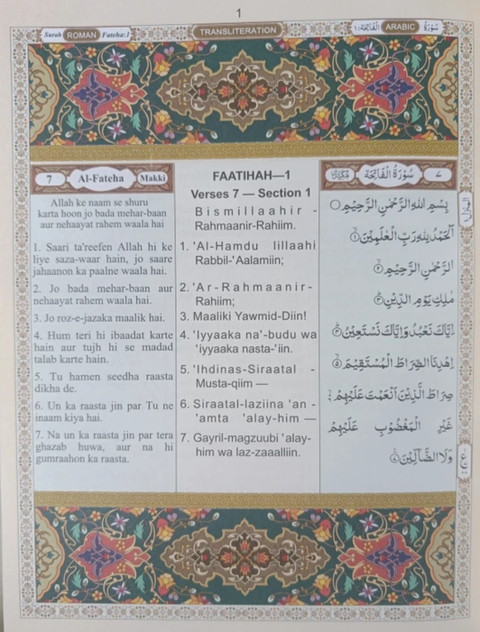 1
Surah ROMAN Fateha:1
TRANSLITERATION
الفاتحة ١ ARABIC سورة
7 Al-Fateha Makki
Allah ke naam se shuru
karta hoon jo bada mehar-baan
aur nehayat rahem waala hai
1. Saari ta'reefen Allah hi ke
liye saza-waar hain, jo saare
jahaanon ka paalne waala hai.
2. Jo bada mehar-baan aur
nehayat rahem waala hai.
3. Jo roz-e-jazaka maalik hai.
4. Hum teri hi ibaadat karte
hain aur tujh hi se madad
talab karte hain.
5. Tu hamen seedha raasta
dikha de.
6. Un ka raasta jin par Tu ne
inaam kiya hai.
7. Na un ka raasta jin par tera
ghazab huwa, aur na hi
gumraahon ka raasta.
FAATIHAH—1
Verses 7 — Section 1
Bismillaahir -
Rahmaanir-Rahiim.
1. 'Al-Hamdu lillaahi
Rabbil-'Aalamiin;
2. 'Ar-Rahmaanir-
Rahiim;
3. Maaliki Yawmid-Diin!
4. 'Iyyaaka na'-budu wa
'iyyaaka nasta-'iin.
5. 'Ihdinas-Siraatal -
Musta-qiim —
6. Siraatal-laziina 'an -
'amta 'alay-him —
7. Gayril-magzuubi 'alay-
him wa laz-zaaalliin.
سُوْرَةُ الْفَاتِحَةِ ٧
بِسْمِ اللهِ الرَّحْمٰنِ الرَّحِيْمِ
اَلْحَمْدُ لِلهِ رَبِّ الْعٰلَمِيْنَ ١
الرَّحْمٰنِ الرَّحِيْمِ ٢
مٰلِكِ يَوْمِ الدِّيْنِ ٣
اِيَّاكَ نَعْبُدُ وَاِيَّاكَ نَسْتَعِيْنُ ٤
اِهْدِنَا الصِّرَاطَ الْمُسْتَقِيْمَ ٥
صِرَاطَ الَّذِيْنَ اَنْعَمْتَ عَلَيْهِمْ ٦
غَيْرِ الْمَغْضُوْبِ عَلَيْهِمْ
وَلَا الضَّآلِّيْنَ ٧